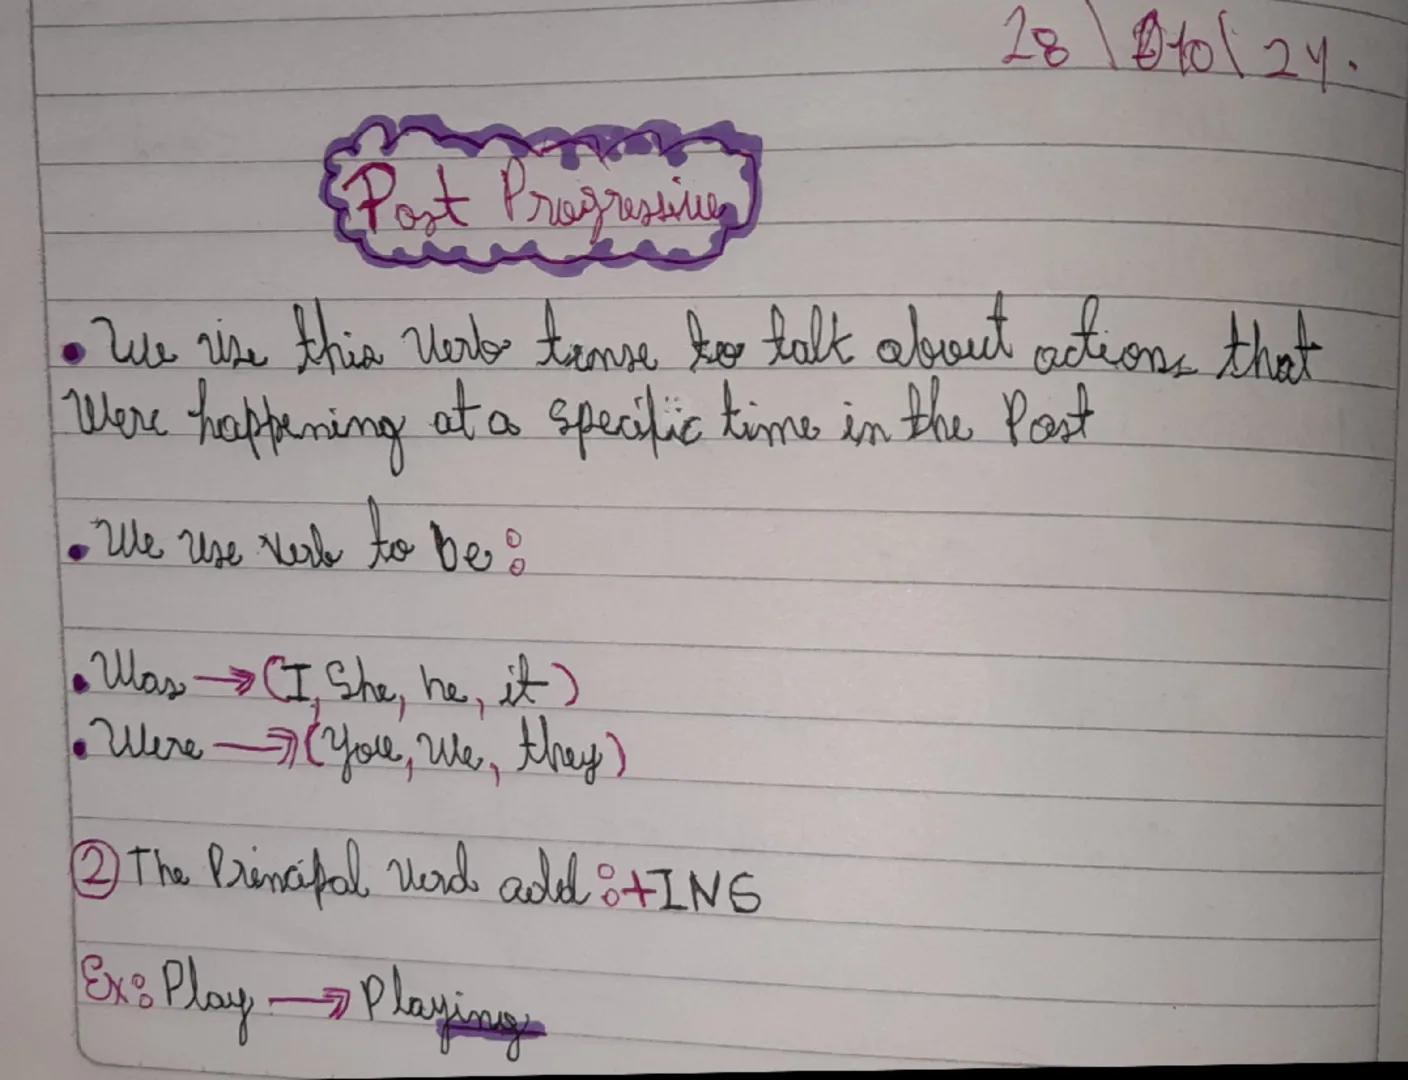 28 \ Oto \ 24.
Past Progressive
• We use this verb tense to talk about actions that
Were happening at a specific time in the Past
• We use verb to be:
• Was → (I, She, he, it)
• Were → (you, we, they)
② The Principal Verd add: + ING
Ex: Play → Playing